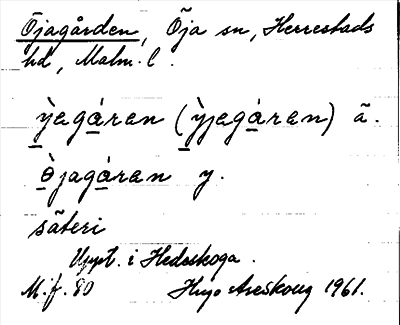 Öjagården, Öja sn, Herrestads
hd, Malm. l.
ỳ̲jagá̲ran (ỳ̲jjagá̲ran) ä.
ò̲jagá̲ran y.
säteri
Uppt. i Hedeskoga.
M.f. 80 Hugo Areskoug 1961.